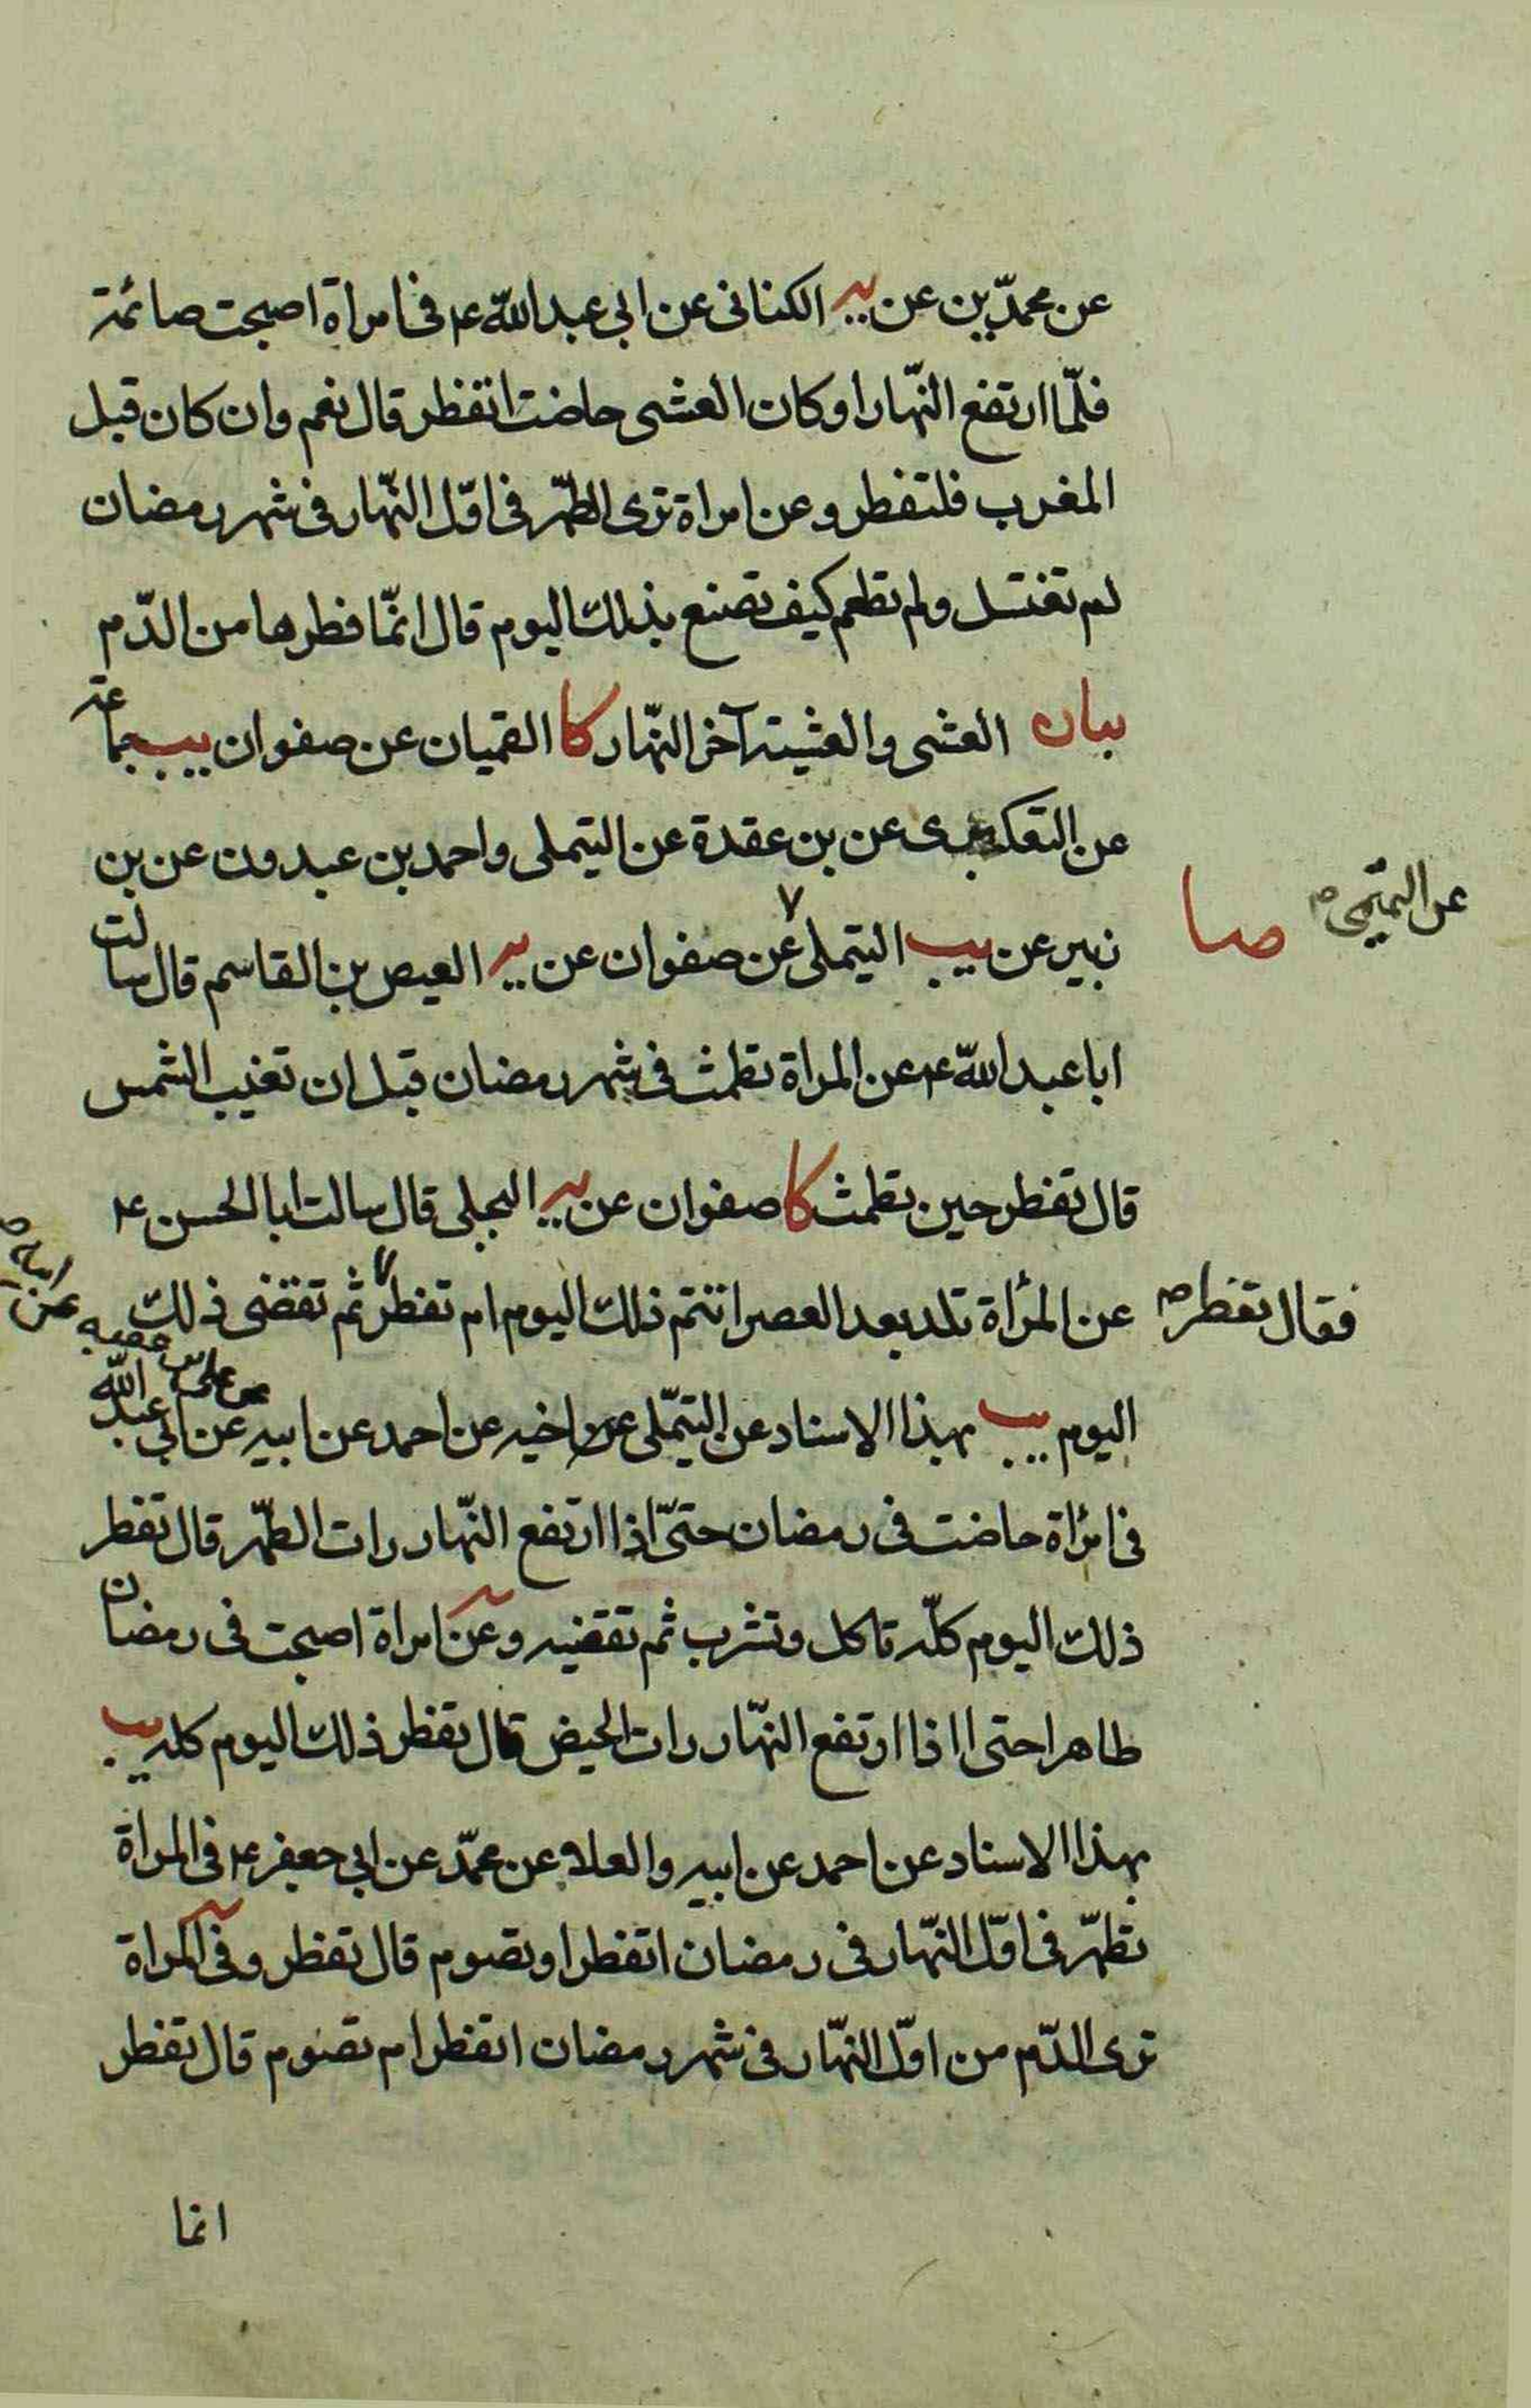 عن محمدّين عن يه الكنانى عن ابى عبد اللّه ع فى امراة اصبحت صائمة
فلمّا ارتفع النّهار او كان العشى حاضت اتفطر قال نعم وان كان قبل
المغرب فلتفطر وعن امراة ترى الطهّر فى اوّل النهّار فى شهر رمضان
لم تغتسل ولم تطعم كيف تصنع بذلك اليوم قال انّما فطرها من الدّم
بيان العشى والعشية آخر النّهار كا القميان عن صفوان يب جماعة
عن التلعكبرى عن بن عقدة عن التيملى واحمد بن عبدون عن بن
زبير عن يب التيملى عن صفوان عن يه العيص بن القاسم قال سالت
عن التميمى م
صا
ابا عبد اللّه ع عن المراة تطمث فى شهر رمضان قبل ان تغيب الشمس
قال تفطر حين تطمث كا صفوان عن يه البجلى قال سالت ابا الحسن ع
عن المرأة تلد بعد العصر اتتم ذلك اليوم ام تفطر ثم تقضى ذلك
فقال تفطر م
اليوم يب بهذا الاسناد عن التيمّلى عن اخيه عن احمد عن ابيه عن ابى عبد اللّه
عن على بن عقبه عن ابيه م
فى امرأة حاضت فى رمضان حتىّ اذا ارتفع النّهار رات الطهّر قال تفطر
ذلك اليوم كلّه تاكل وتشرب ثم تقضيه وعن امراة اصبحت فى رمضان
طاهرا حتى اذا ارتفع النهّار رات الحيض قال تفطر ذلك اليوم كله يب
بهذا الاسناد عن احمد عن ابيه والعلاء عن محمّد عن ابى جعفر ع فى المراة
تطهّر فى اوّل النهّار فى رمضان اتفطر او تصوم قال تفطر وفى المراة
ترى الدّم من اوّل النهّار فى شهر رمضان اتفطر ام تصوم قال تفطر
انما